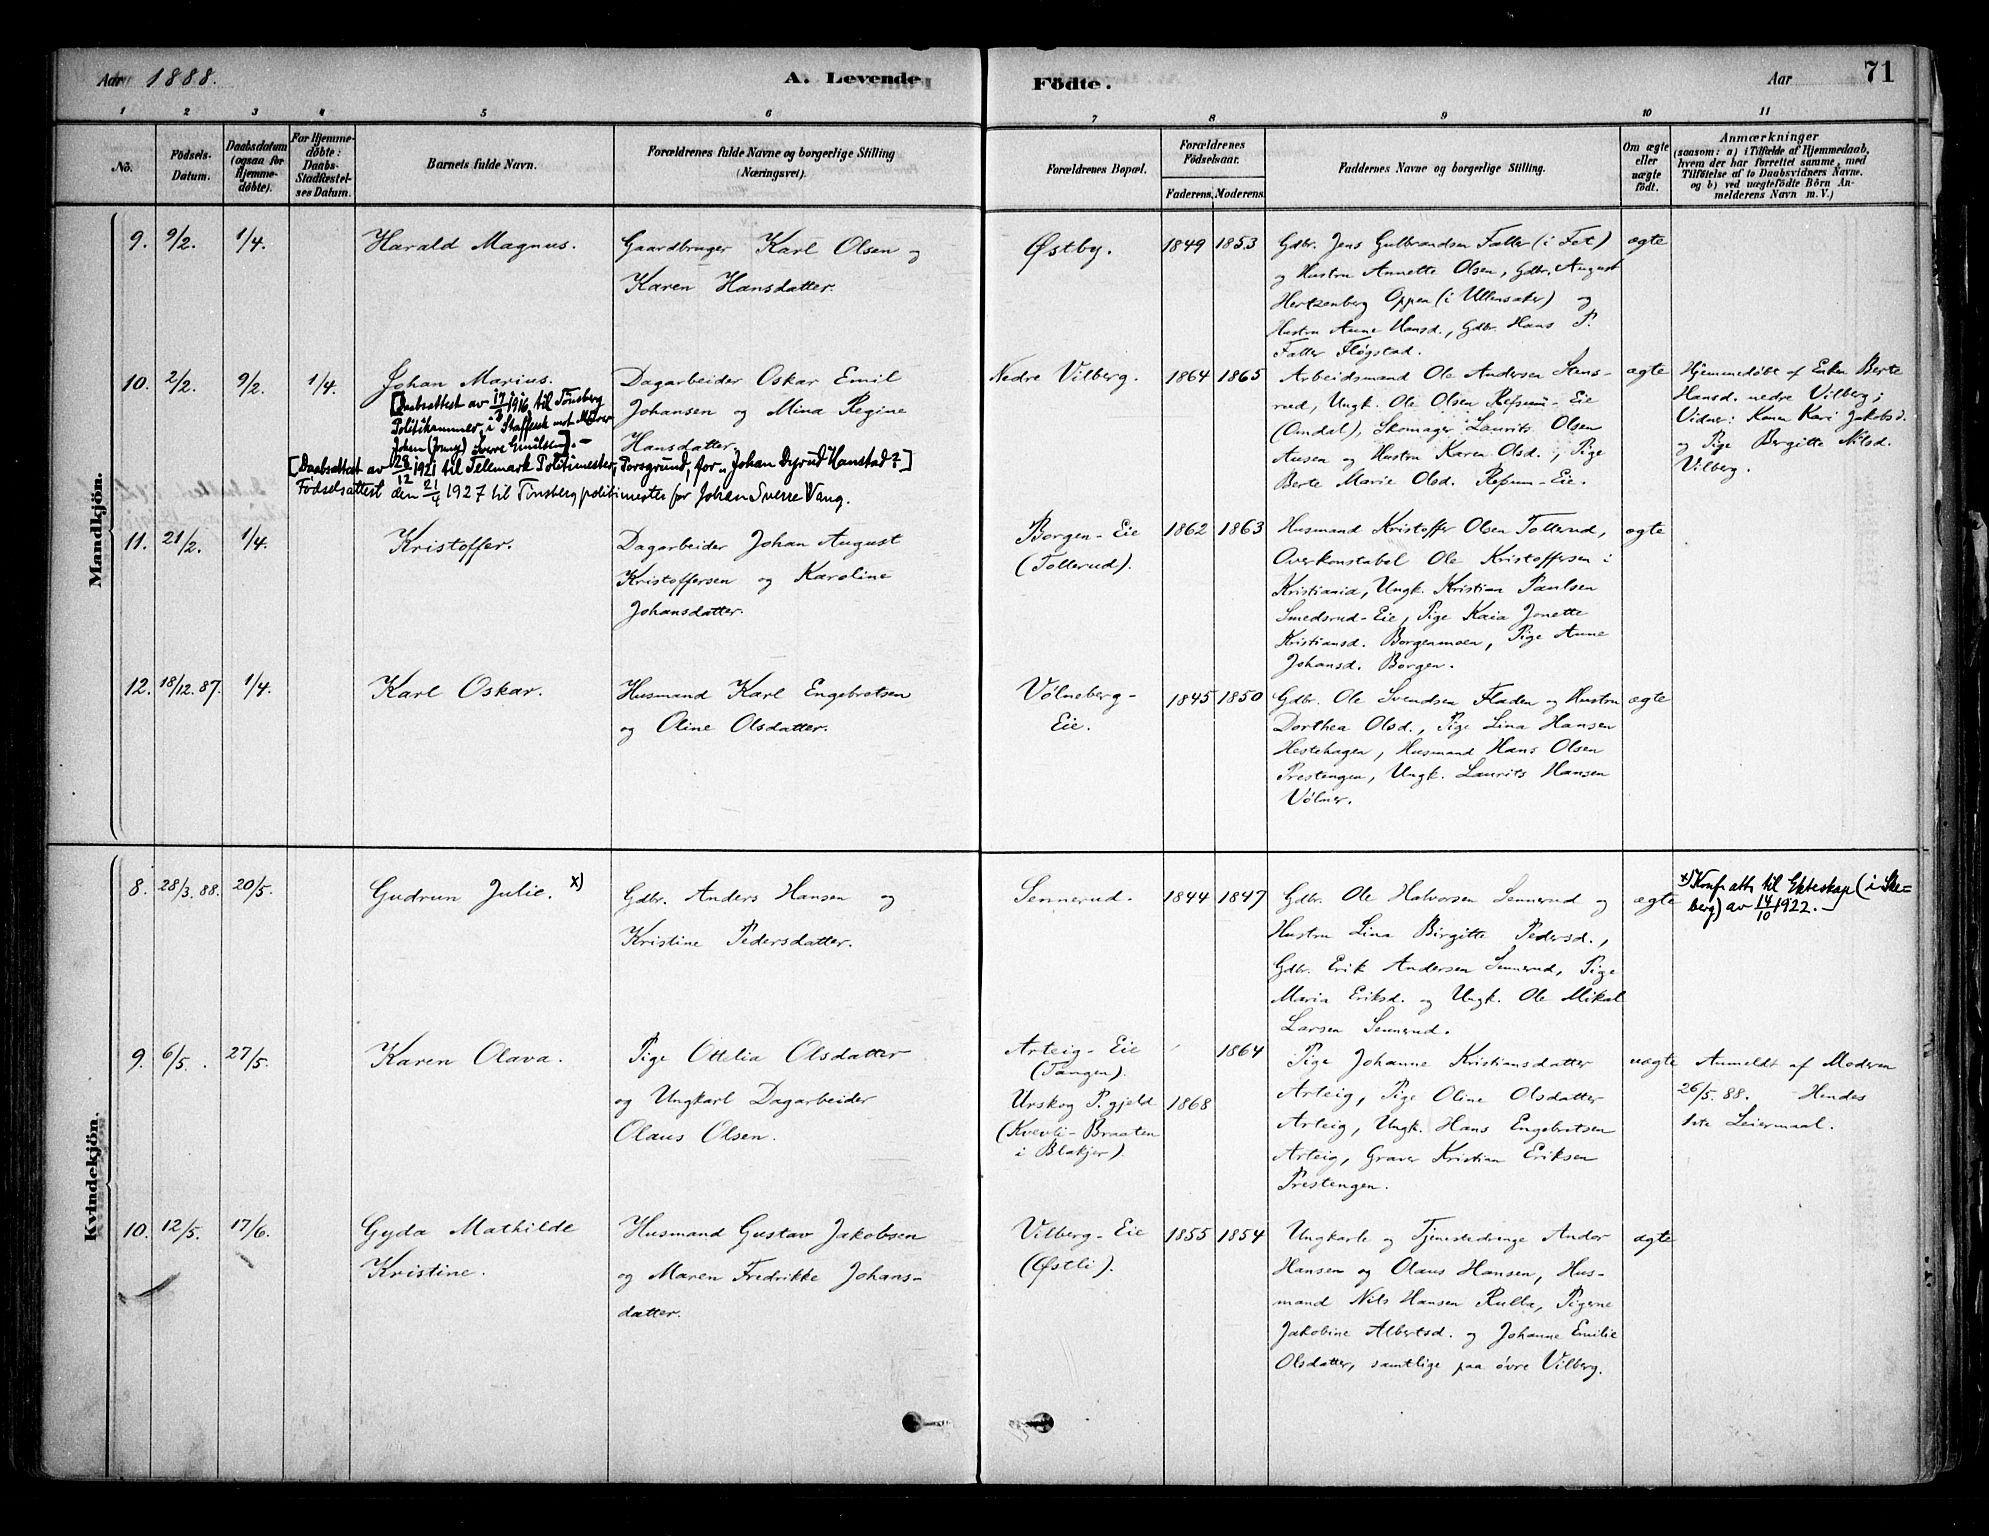 Aar 1888.
A. Levende
Fødte.
Aar
71
1 2 3 4 5 6 7 8 9 10 11
No.
Fødsels-
Datum.
Daabsdatum
(ogsaa for
Hjemme-
døbte).
For Hjemme-
døbte:
Daabs-
Stadfæstel-
ses Datum.
Barnets fulde Navn.
Forældrenes fulde Navne og borgerlige Stilling
(Næringsvei).
Forældrenes Bopæl.
Forældrenes
Fødselsaar.
Faderens. Moderens.
Faddernes Navne og borgerlige Stilling.
Om ægte
eller
uægte
født.
Anmærkninger
(saasom: a) i Tilfælde af Hjemmedaab,
hvem der har forrettet samme, med
Tilføielse af to Daabsvidners Navne.
og b) ved uægtefødte Börn An-
melderens Navn m. V.)
Mandkjön.
9. 9/2. 1/4. Harald Magnus.
Gaardbruger Karl Olsen og
Karen Hansdatter.
Østby. 1849 1853
Gdbr. Jens Gulbrandsen Faller (i Fet)
og Hustru Annette Olsen, Gdbr. August
Hertzenberg Oppen (i Ullensaker) og
Hustru Anne Hansd., Gdbr. Hans P.
Faller Fløgstad.
ægte
10. 2/2. 9/2. 1/4. Johan Marius.
[Daabsattest av 17/3 1916 til Tønsberg
Politikammer, i Straffesak mot
Johan (Jonny) Sverre Emilsen]. -
[Daabsattest av 28/12 1921 til Telemark Politimester, Porsgrund, for "Johan Dyrud Hanstad"?]
Fødselsattest den 21/4 1927 til Tønsberg politimester for Johan Sverre Vang.
Dagarbeider Oskar Emil
Johansen og Mina Regine
Hansdatter.
Nedre Vilberg. 1864 1865
Arbeidsmand Ole Andersen Stens-
rud, Ungk. Ole Olsen Refsum-Eie
(Omdal), Skomager Laurits Olsen
Ausen og Hustru Karen Olsd., Pige
Berte Marie Olsd. Refsum-Eie.
ægte
Hjemmedøbt af Enken Berte
Hansd. nedre Vilberg;
Vidner: Kona Kari Jakobsd.
og Pige Bergitte Nilsd.
Vilberg.
11. 21/2. 1/4. Kristoffer.
Dagarbeider Johan August
Kristoffersen og Karoline
Johansdatter.
Borgen-Eie
(Tollerud).
1862 1863
Husmand Kristoffer Olsen Tollerud,
Overkonstabel Ole Kristoffersen i
Kristiania, Ungk. Kristian Paulsen
Smedsrud-Eie, Pige Kaia Jonette
Kristiansd. Borgenmoen, Pige Anne
Johansd. Borgen.
ægte
12. 18/12.87. 1/4. Karl Oskar.
Husmand Karl Engebretsen
og Oline Olsdatter.
Vølneberg-
Eie.
1845 1850
Gdbr. Ole Svendsen Fladen og Hustru
Dorthea Olsd., Pige Lina Hansen
Hestehagen, Husmand Hans Olsen
Prestengen, Ungk. Laurits Hansen
Vølner.
ægte
Kvindekjön.
8. 28/3.88. 20/5. Gudrun Julie. x)
Gdbr. Anders Hansen og
Kristine Pedersdatter.
Sennerud. 1844 1847
Gdbr. Ole Halvorsen Sennerud og
Hustru Lina Birgitte Pedersd.,
Gdbr. Erik Andersen Sennerud, Pige
Maria Eriksd. og Ungk. Ole Mikal
Larsen Sennerud.
ægte
x) Konf. att. til Ekteskap (i Ske-
berg) av 14/10 1922. -
9. 6/5. 27/5. Karen Olava.
Pige Ottelia Olsdatter
og Ungkarl Dagarbeider
Olaus Olsen.
Arteig-Eie
(Tangen).
Urskog P.gjeld
(Kvevli-Braaten
i Blakjer).
1864
1868
Pige Johanne Kristiansdatter
Arteig, Pige Oline Olsdatter
Arteig, Ungk. Hans Engebretsen
Arteig, Graver Kristian Eriksen
Prestengen.
uægte
Anmeldt af Moderen
26/5.88. Hendes
1ste Leiermaal.
10. 12/5. 17/6. Gyda Mathilde
Kristine.
Husmand Gustav Jakobsen
og Maren Fredrikke Johans-
datter.
Vilberg-Eie
(Østli).
1855 1854
Ungkarle og Tjenestedrenge Andor
Hansen og Olaus Hansen, Hus-
mand Nils Hansen Rulla, Pigerne
Jakobine Albertsd. og Johanne Emilie
Olsdatter, samtlige paa øvre Vilberg.
ægte